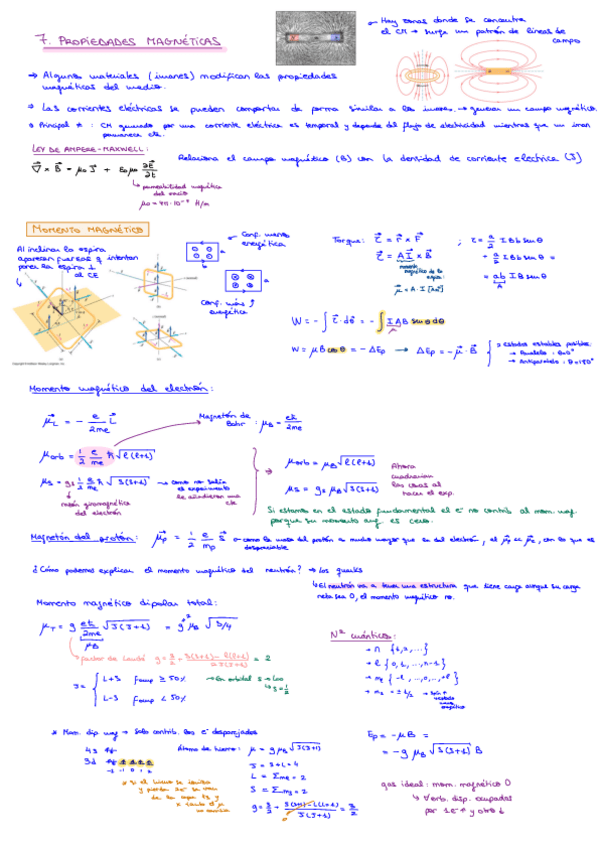 7. PROPIEDADES MAGNÉTICAS
→ Hay zonas donde se concentra
el CM → surge un patrón de líneas de
campo
→ Algunos materiales (imanes) modifican las propiedades
magnéticas del medio.
→ Las corrientes eléctricas se pueden comportar de forma similar a los imanes → generan un campo magnético.
→ Principal ≠ : CM generado por una corriente eléctrica es temporal y depende del flujo de electricidad mientras que un iman
permanece cte.
LEY DE AMPERE-MAXWELL:
Relaciona el campo magnético (B) con la densidad de corriente eléctrica (J)
∇ × B = μ0 J + ε0μ0 ∂E/∂t
permeabilidad magnética
del vacío
MOMENTO MAGNÉTICO
Al inclinar la espira
aparecen fuerzas q intentan
poner la espira ⊥
al CE
Conf. menos
energética
Conf. más
energética
Torque: τ = r × F ; τ = a/2 I B b sen θ
τ = A I × B
+ a/2 I B b sen θ =
momento
magnético de la
espira
= ab I B sen θ
A
μ = A · I [Am²]
W = - ∫ τ · dθ = - ∫ I A B sen θ dθ
W = μ B cos θ = - ΔEp → ΔEp = - μ · B
2 estados estables posibles:
→ Paralelo: θ=0°
→ Antiparalelo: θ=180°
Momento magnético del electrón:
μL = - e/2me L
Magnetón de
Bohr : μB = eħ/2me
μorb = 1/2 e/me ħ √l(l+1)
μs = gs 1/2 e/me ħ √s(s+1)
→ como no salía
el experimento
le añadieron una
cte
razón giromagnética
del electrón
μorb = μB √l(l+1)
μs = gs μB √s(s+1)
Ahora
cuadrarían
las cosas al
hacer el exp.
Si estamos en el estado fundamental el e⁻ no contrib. al mom. mag
porque su momento ang es cero.
Magnetón del protón: μp = 1/2 e/mp S → como la masa del protón es mucho mayor que la del electrón, el μp << μe, con lo que es
despreciable
¿Cómo podemos explicar el momento magnético del neutrón? → los quarks
↳ El neutrón va a tener una estructura que tiene carga aunque su carga
neta sea 0, el momento magnético no.
Momento magnético dipolar total:
μT = g eħ/2me √J(J+1) = g μB √3/4
μB
factor de Landé g = 3/2 + S(S+1) - L(L+1) / 2J(J+1) = 2
J = { L+S f capa ≥ 50%
L-S f capa < 50%
→ En orbital s → l=0
→ s = 1/2
Nº cuánticos:
→ n {1, 2, ...}
→ l {0, 1, ..., n-1}
→ ml {-l, ..., 0, ..., +l}
→ ms = ± 1/2
* Mom. dip mag → solo contrib. los e⁻ desparejados
4s
3d
-2 -1 0 1 2
Átomo de hierro: μ = g μB √J(J+1)
J = S + L = 4
L = Σml = 2
S = Σms = 2
g = 3/2 + S(S+1) - L(L+1) / 2J(J+1) = 3/2
Ep = - μB =
= - g μB √J(J+1) B
gas ideal: mom. magnético 0
↳ ∀ orb. disp. ocupados
por 1 e⁻ ↑ y otro ↓